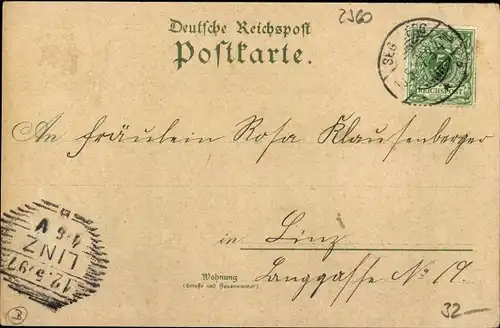 2360
Deutsche Reichspost
Postkarte.
REICHSPOST
An Fräulein Rosa Klausenberger
12.5.97
LINZ
4-5 V
in Linz
Wohnung
(Straße und Hausnummer)
Langgasse No 19.
32-